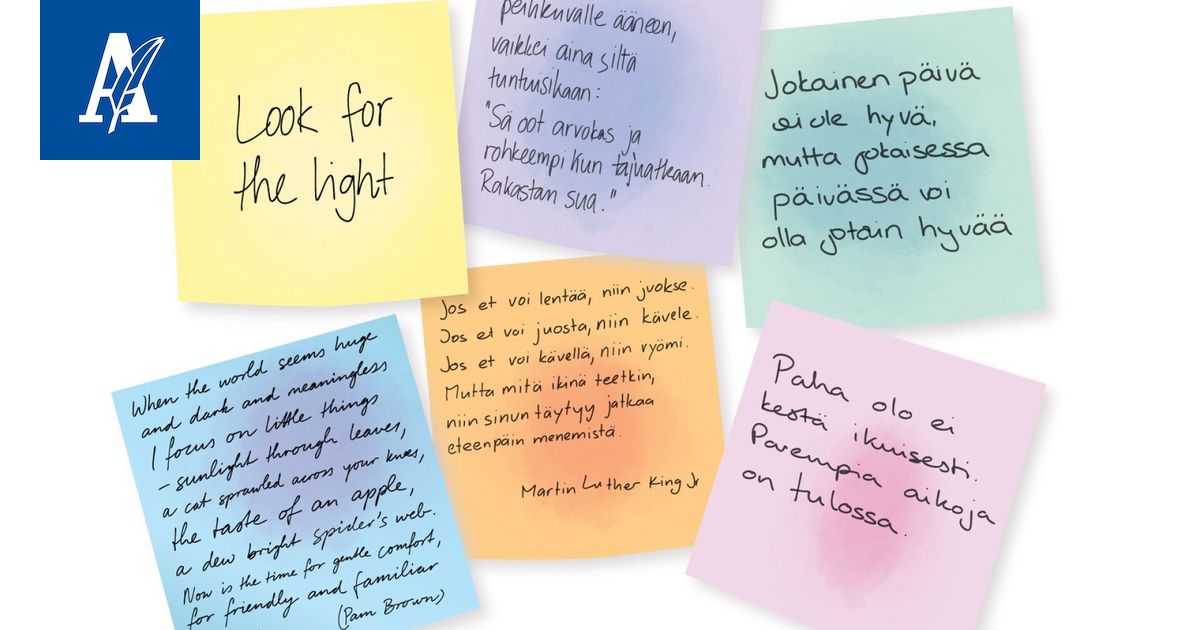 A
Look for
the light
peilikuvalle ääneen,
vaikkei aina siltä
tuntuisikaan:
"Sä oot arvokas ja
rohkeempi kun tajuatkaan.
Rakastan sua."
Jokainen päivä
ei ole hyvä,
mutta jokaisessa
päivässä voi
olla jotain hyvää
When the world seems huge
and dark and meaningless
I focus on little things
- sunlight through leaves,
a cat sprawled across your knees,
the taste of an apple,
a dew bright spider's web.
Now is the time for gentle comfort,
for friendly and familiar
(Pam Brown)
Jos et voi lentää, niin juokse.
Jos et voi juosta, niin kävele.
Jos et voi kävellä, niin ryömi.
Mutta mitä ikinä teetkin,
niin sinun täytyy jatkaa
eteenpäin menemistä.
Martin Luther King Jr
Paha olo ei
kestä ikuisesti.
Parempia aikoja
on tulossa.